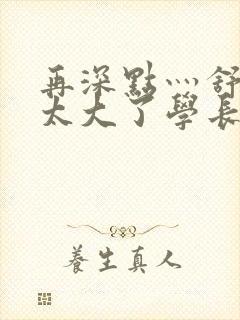 再深點灬舒
太大了學長
養生真人